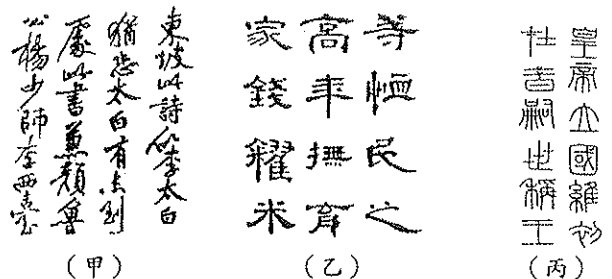 東坡此詩似李太白
猶恐太白有未到
處此書兼顏魯
公楊少師李西臺
(甲)
等恤民之
高年撫育
家錢糴米
(乙)
皇帝立國維初
在昔嗣世稱王
(丙)